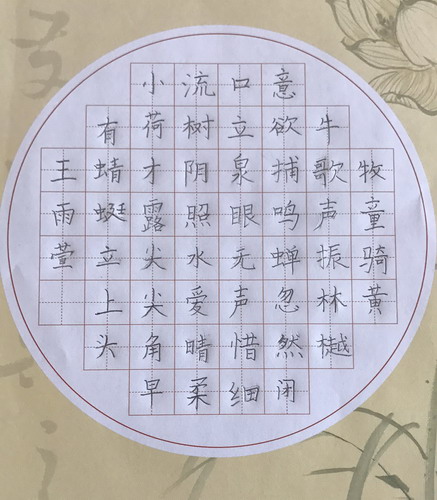 牧童骑黄
牛歌声振林樾
意欲捕鸣蝉忽然闭
口立泉眼无声惜细
流树阴照水爱晴柔
小荷才露尖尖角早
有蜻蜓立上头
王雨萱